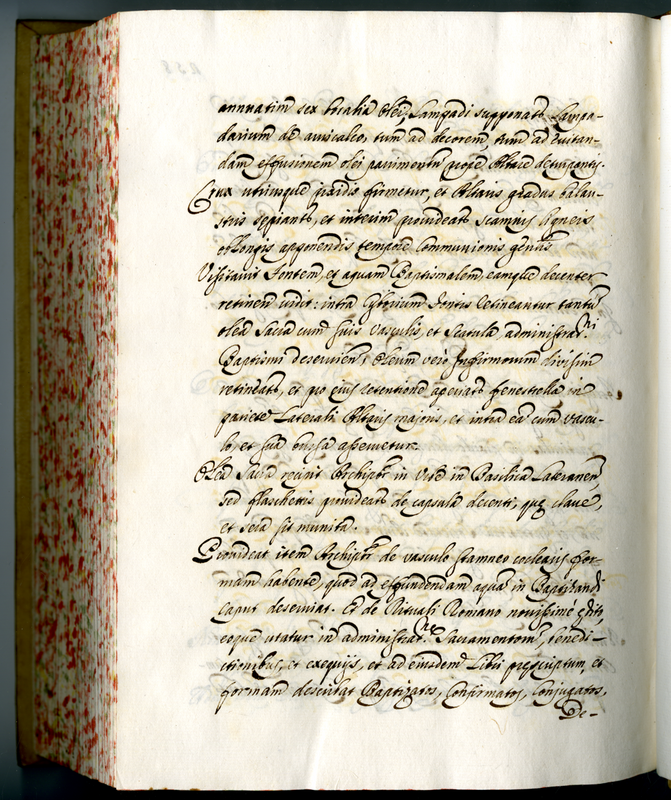 annuatim sex bocalia olei Lampadi supponat Lampa-
darium de auricalco, tum ad decorem, tum ad euitan-
dam effusionem olei pavimentum prope Altare deturpantis.
Crux utrinque firmetur, et Altaris gradus balau-
stris sepiant, et interim provideat scamnis ligneis
oblongis apponendis tempore Communionis
Visitavit Fontem, et aquam Baptismalem, eamque decenter
retineri vidit: intra Ciborium Fontis retineantur tantu
olea Sacra cum suis vasculis, et Scatula, administrat.ni
Baptismi deservien; Oleum vero Infirmorum divisim
retineat, et pro eius retentione aperiat fenestrella in
pariete Laterali Altaris majoris, et intra ea cum vascu-
lo, et sua bursa asservetur.
Olea Sacra recipit Archipr in Urbe in Basilica Lateranen
sed flaschettis provideat de capsula decenti, que clave,
et sera sit munita.
Provideat item Archipr de vasculo stamneo coclearis for-
mam habente, quod ad effundendam aqua in Baptizandi
caput deserviat. Et de Rituali Romano novissime edito,
eoque utatur in administrat.ne Sacramentorum, benedi-
ctionibus, et exequijs, et ad eiusdem Libri prescriptum, et
formam describat Baptizatos, Confirmatos, Conjugatos,
De-